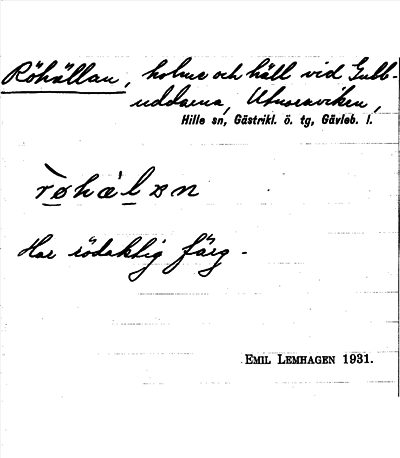 Röhällan, holme och häll vid Gubb-
uddarna, Utnoraviken,
Hille sn, Gästrikl. ö. tg, Gävleb. l.
Har rödaktig färg.
EMIL LEMHAGEN 1931.